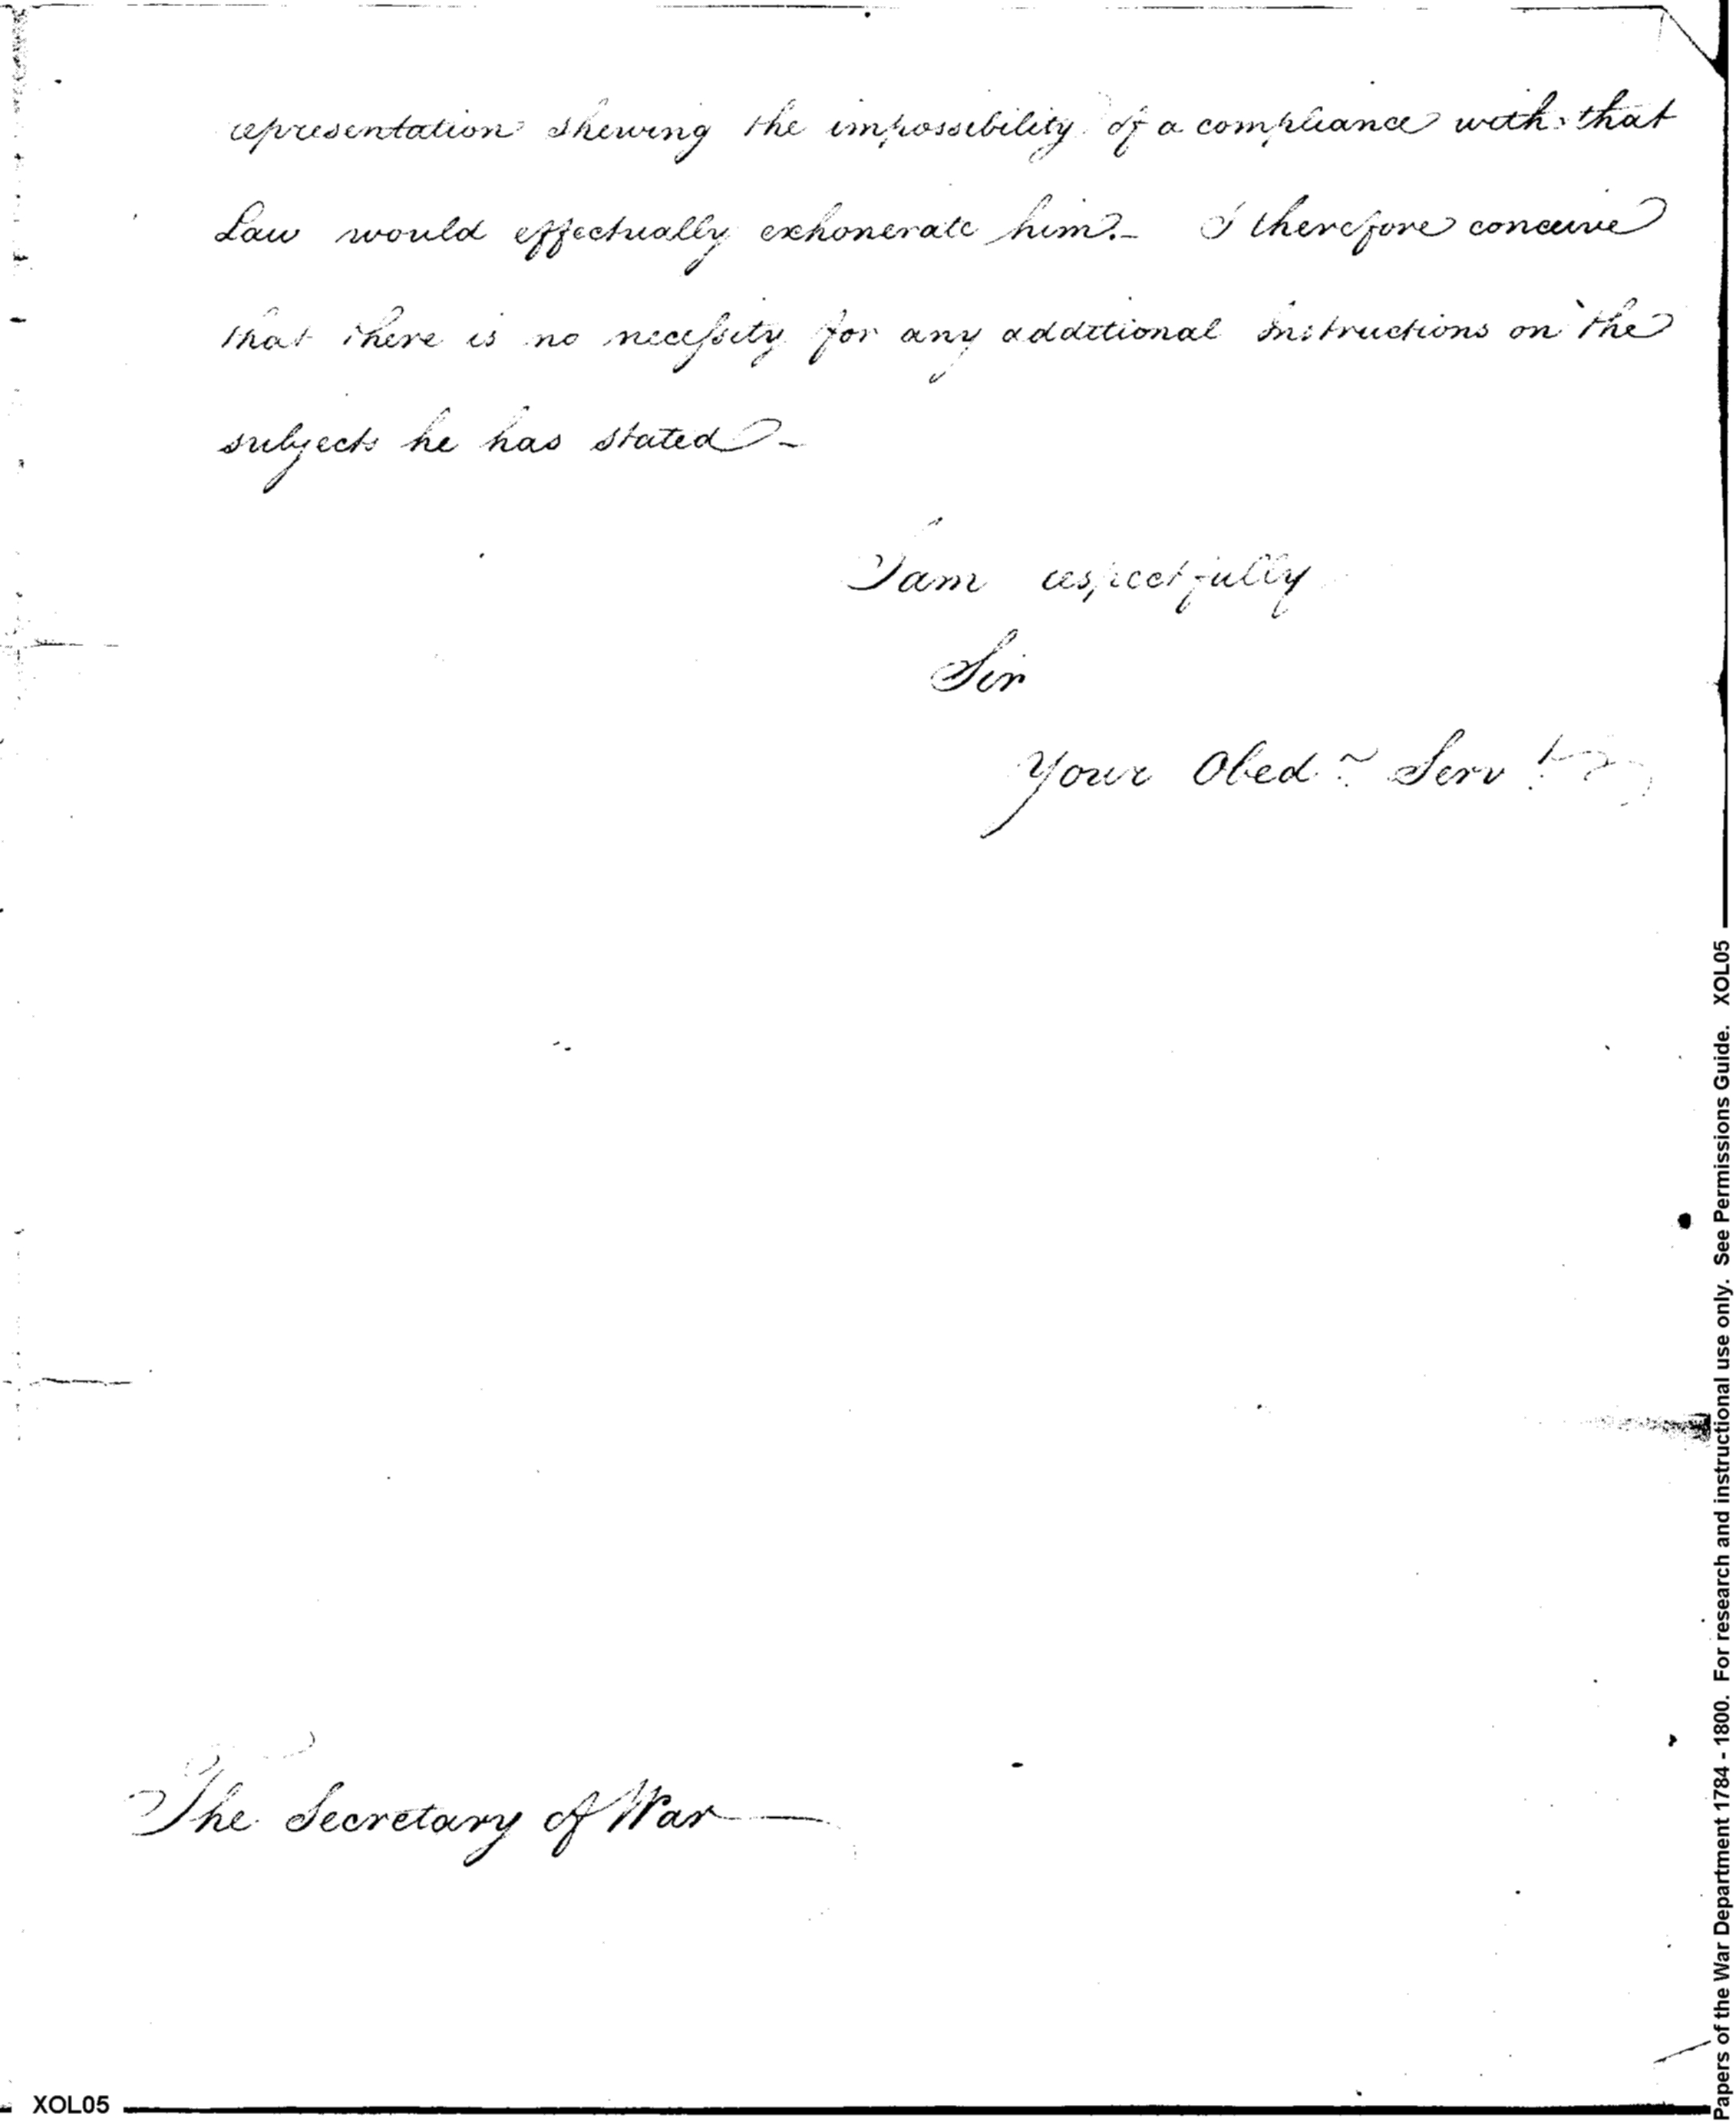 representation shewing the impossibility of a compliance with that
Law would effectually exhonerate him. – I therefore conceive
that there is no necessity for any additional Instructions on the
subjects he has stated –
I am respectfully
Sir
Your Obed.t Serv.t
The Secretary of War —
XOL05
Papers of the War Department 1784 - 1800. For research and instructional use only. See Permissions Guide. XOL05